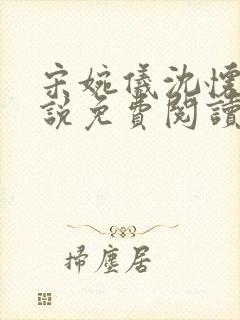 宋婉儀沈懷
說免費閱讀
掃塵居